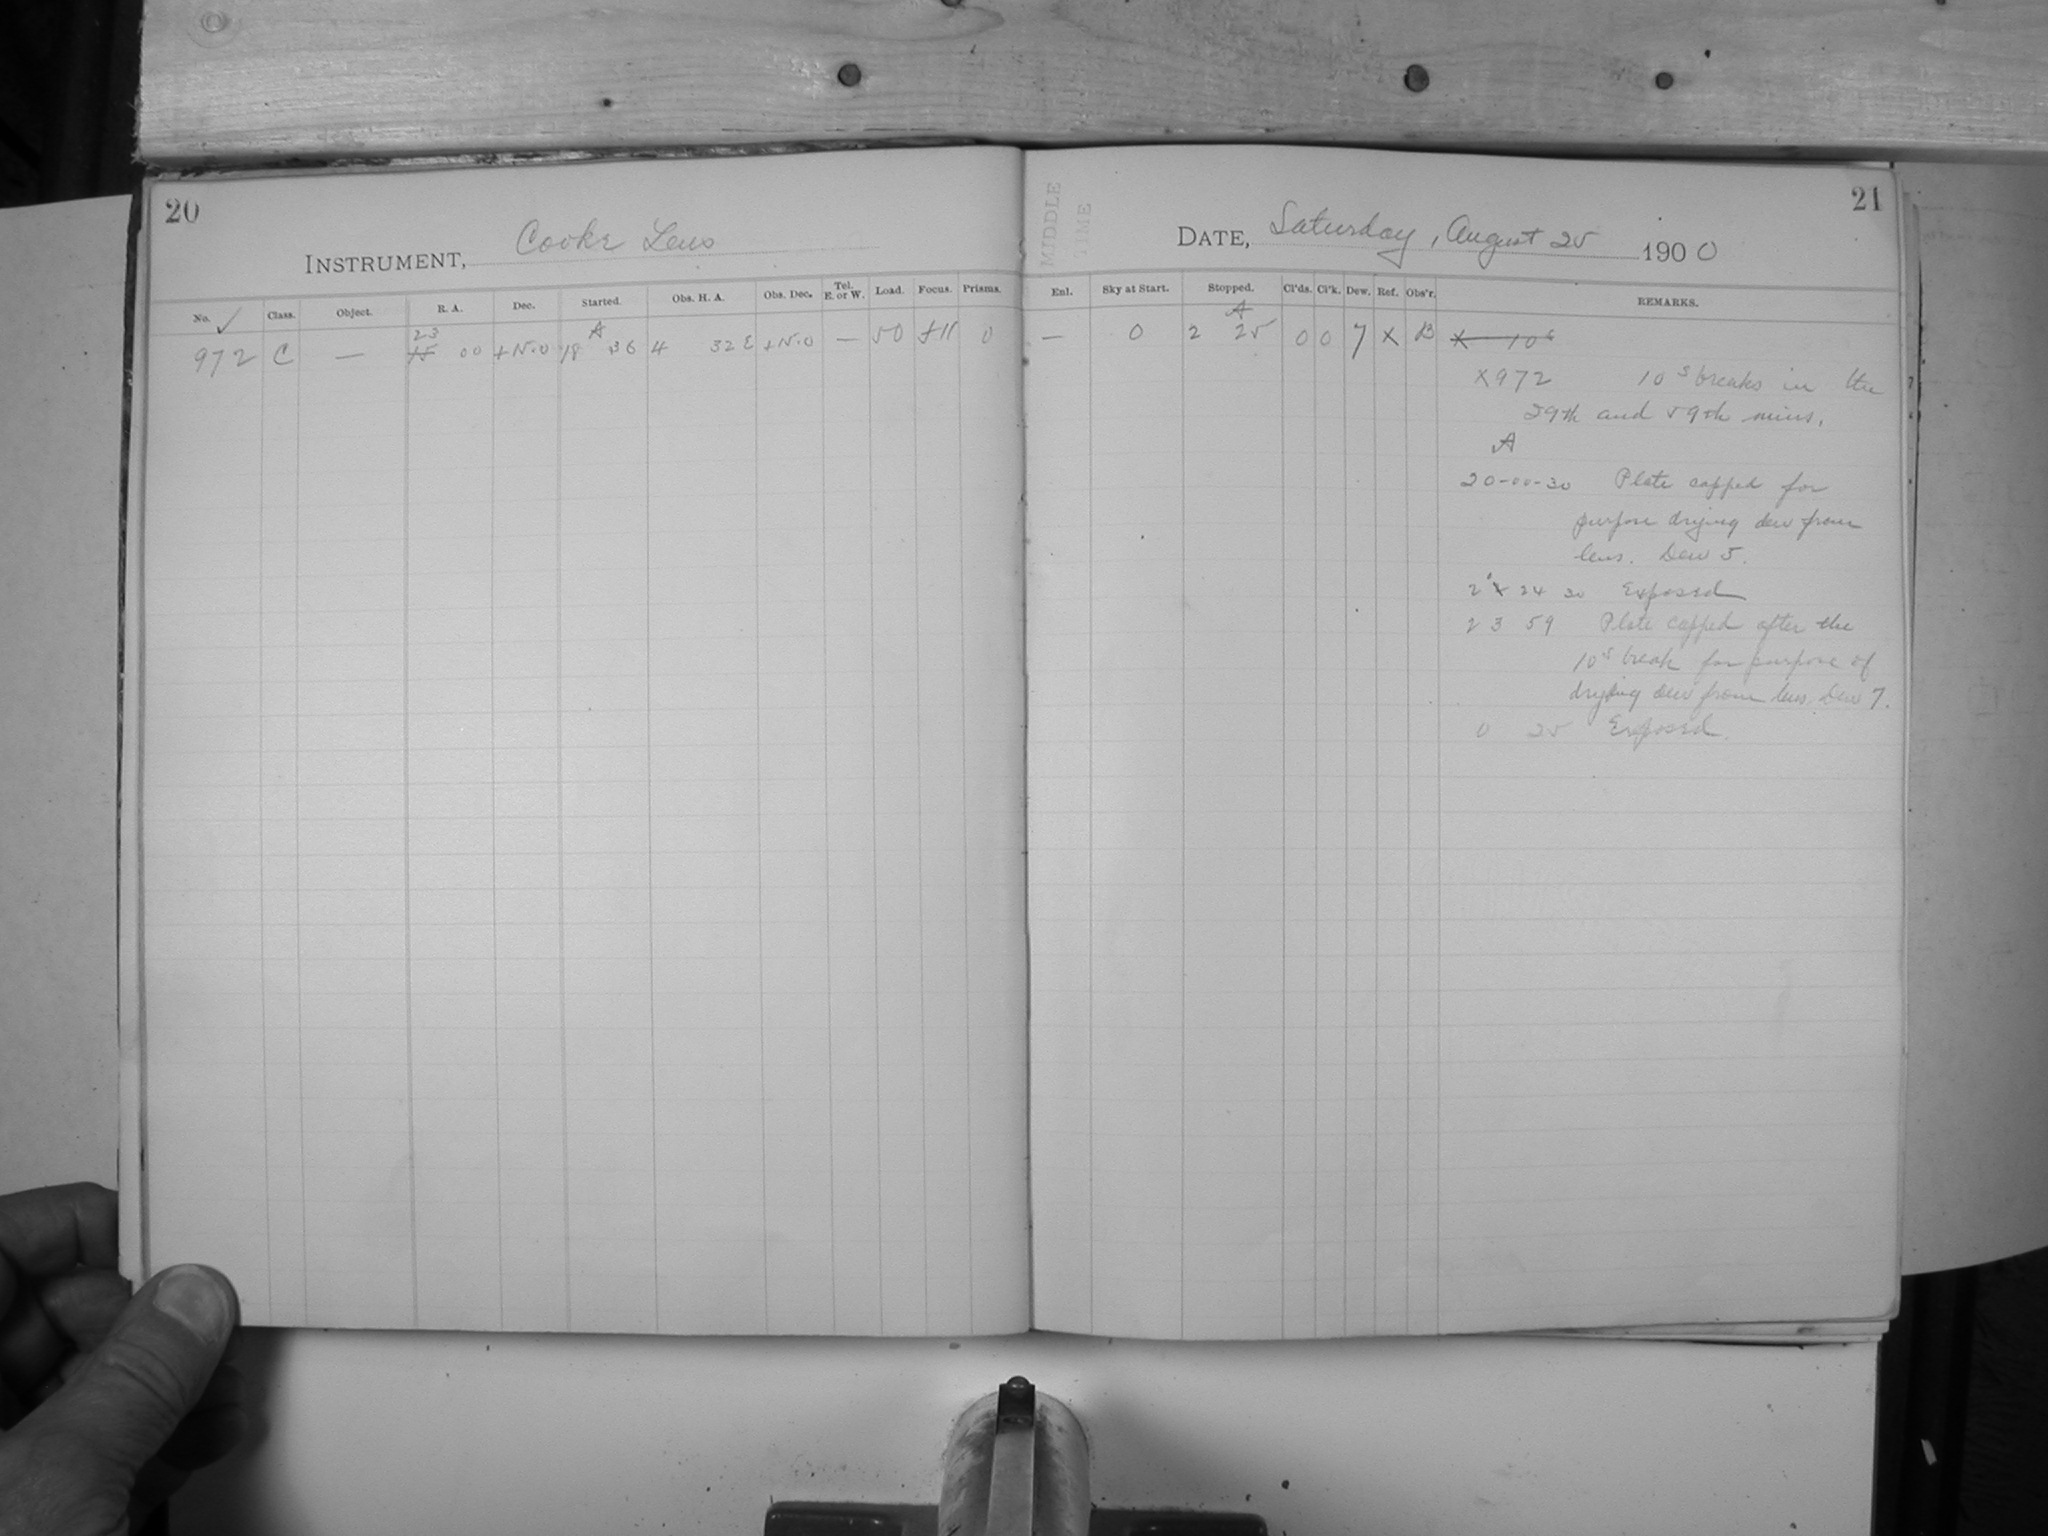 20
INSTRUMENT, Cooke Lens
No. ✓ Class. Object. R. A. Dec. Started. Obs. H. A. Obs. Dec. Tel. E. or W. Load. Focus. Prisms.
23 A
972 C — 15 00 +15.0 18 36 4 32 E +15.0 — 50 +11 0
MIDDLE
TIME
21
DATE, Saturday, August 25 1900
Enl. Sky at Start. Stopped. Cl'ds. Cl'k. Dew. Ref. Obs'r. REMARKS.
A
— 0 2 25 0 0 7 X B X 10s
X972 10s breaks in the
29th and 59th mins.
A
20-00-30 Plate capped for
purpose drying dew from
lens. Dew 5.
24 30 Exposed
23 59 Plate capped after the
10s break for purpose of
drying dew from lens. Dew 7.
0 25 Exposed.